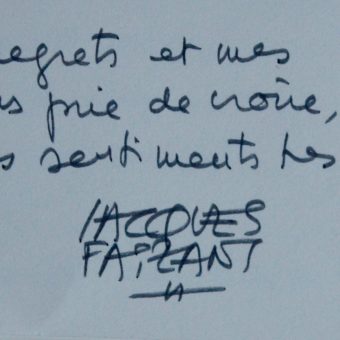 regrets et mes
us prie de croire,
s sentiments très
JACQUES
FAIZANT